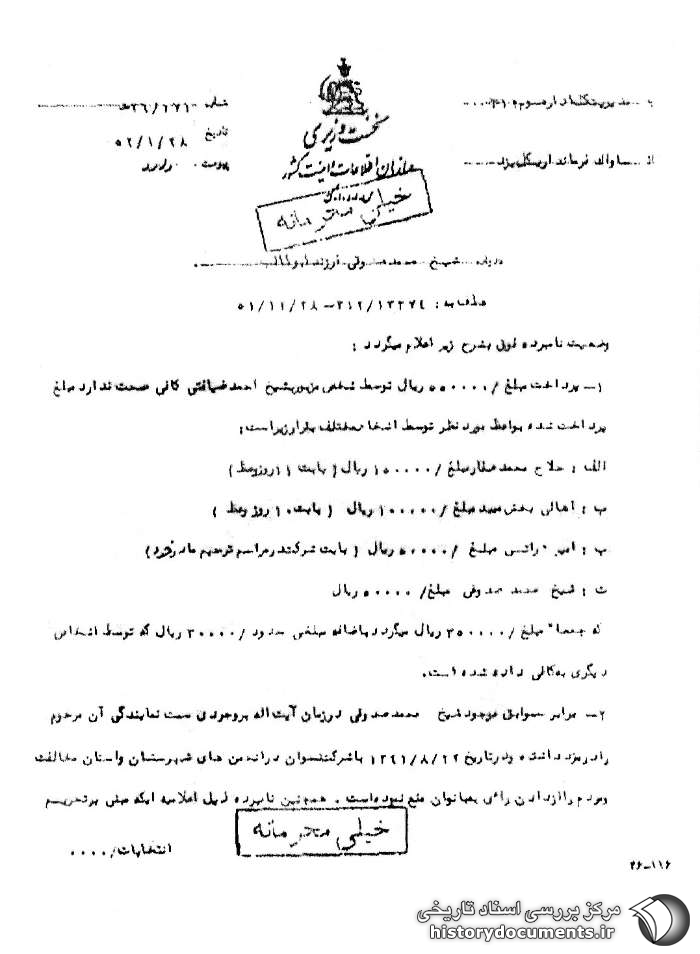 به مدیریت کل اداره سوم ۳۱۰
شماره ۱۷۱/۳۶ه
نخست وزیری
تاریخ ۵۲/۱/۲۸
سازمان اطلاعات و امنیت کشور
از ساواک فرمانداریکل یزد
پیوست ندارد
س.ا.و.ا.ک
خیلی محرمانه
درباره شیخ محمد صدوقی فرزند ابوطالب
عطف به: ۳۱۲/۱۲۲۷٤-۵۱/۱۱/۲۸
وضعیت نامبرده فوق بشرح زیر اعلام میگردد :
۱- پرداخت مبلغ /۵۵۰۰۰۰ ریال توسط شخص مزبور بشیخ احمد ضیافتی کافی صحت ندارد مبلغ
پرداخت شده بواعظ مورد نظر توسط اشخاص مختلف بقرار زیر است:
الف : حلاج محمد صفار مبلغ /۱۵۰۰۰۰ ریال ( بابت ۱۱ روز وعظ )
ب : اهالی بخش میبد مبلغ /۱۰۰۰۰۰ ریال ( بابت ۱۰ روز وعظ )
پ : امیر مبلغ /۵۰۰۰۰ ریال ( بابت شرکت در مراسم ترحیم مادر خود )
ت : شیخ محمد صدوقی مبلغ /۵۰۰۰۰ ریال
که جمعا" مبلغ /۳۵۰۰۰۰ ریال میگردد باضافه مبلغی حدود /۳۰۰۰۰ ریال که توسط اشخاص
دیگری به کافی داده شده است.
۲- برابر سوابق موجود شیخ محمد صدوقی در زمان آیت اله بروجردی سمت نمایندگی آن مرحوم
را در یزد داشته و در تاریخ ۱۳٤۱/۸/۲۲ با شرکت نسوان در انجمن های شهرستان و استان مخالفت
و مردم را از دادن رای به بانوان منع نموده است . همچنین نامبرده ذیل اعلامیه ایکه مبنی بر تحریم
انتخابات/۰۰۰۰
خیلی محرمانه
۲۶-۱۱۶
مرکز بررسی اسناد تاریخی
historydocuments.ir